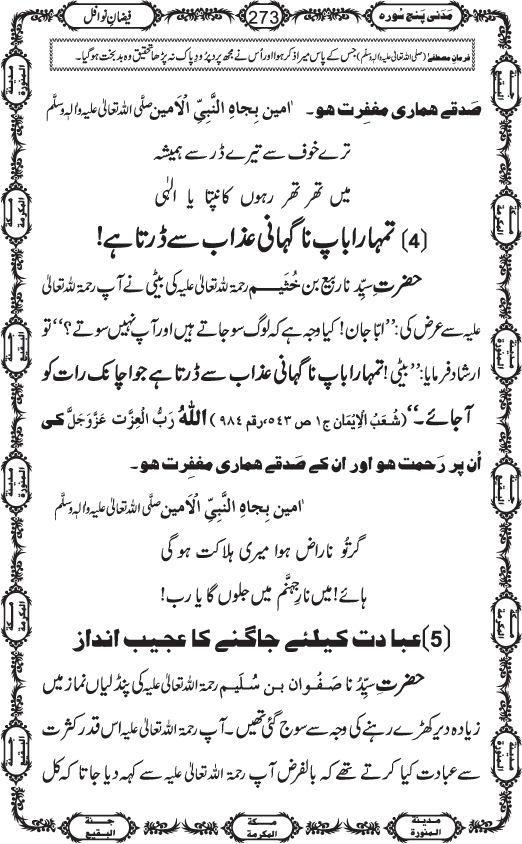 مَدَنی پنج سُورہ
273
فیضانِ نوافل
فرمانِ مصطفٰے (صلی اللہ تعالیٰ علیہ والہٖ وسلم) جس کے پاس میرا ذکر ہوا اور اُس نے مجھ پر دُرُودِ پاک نہ پڑھا تحقیق وہ بد بخت ہو گیا۔
صَدقے ہماری مغفِرت ہو۔ اٰمین بِجاہِ النَّبِیِّ الْاَمین صلَّی اللہ تعالیٰ علیہ واٰلہٖ وسلَّم
ترے خوف سے تیرے ڈر سے ہمیشہ
میں تھر تھر رہوں کانپتا یا الٰہی
(4) تمہارا باپ ناگہانی عذاب سے ڈرتا ہے!
حضرتِ سیِّدنا ربیع بن خُثَیم رحمۃ اللہ تعالیٰ علیہ کی بیٹی نے آپ رحمۃ اللہ تعالیٰ
علیہ سے عرض کی: ’’ابّا جان! کیا وجہ ہے کہ لوگ سو جاتے ہیں اور آپ نہیں سوتے؟‘‘ تو
ارشاد فرمایا: ’’بیٹی! تمہارا باپ ناگہانی عذاب سے ڈرتا ہے جو اچانک رات کو
آجائے۔‘‘ (شُعَبُ الْاِیْمَان ج۱ ص ۵۴۳، رقم ۹۸۴) اللہُ رَبُّ الْعِزَّت عَزَّوَجَلَّ کی
اُن پر رَحمت ہو اور ان کے صَدقے ہماری مغفِرت ہو۔
اٰمین بِجاہِ النَّبِیِّ الْاَمین صلَّی اللہ تعالیٰ علیہ واٰلہٖ وسلَّم
گر تُو ناراض ہوا میری ہلاکت ہو گی
ہائے! میں نارِ جہنَّم میں جلوں گا یا رب!
(5) عبادت کیلئے جاگنے کا عجیب انداز
حضرتِ سیِّدُنا صَفْوان بن سُلَیم رحمۃ اللہ تعالیٰ علیہ کی پنڈلیاں نماز میں
زیادہ دیر کھڑے رہنے کی وجہ سے سوج گئی تھیں۔ آپ رحمۃ اللہ تعالیٰ علیہ اس قدر کثرت
سے عبادت کیا کرتے تھے کہ بالفرض آپ رحمۃ اللہ تعالیٰ علیہ سے کہہ دیا جاتا کہ کل
مدینۃ المنورۃ
مکۃ المکرمۃ
جنۃ البقیع
مدینۃ المنورۃ
مکۃ المکرمۃ
جنۃ البقیع
جنۃ البقیع
مکۃ المکرمۃ
مدینۃ المنورۃ
جنۃ البقیع
مکۃ المکرمۃ
مدینۃ المنورۃ
مدینۃ المنورۃ
مکۃ المکرمۃ
جنۃ البقیع